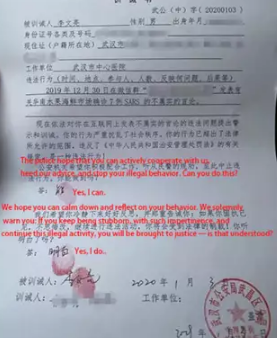 训 诫 书
武公(中)字(20200103)
被训诫人 李文亮 性别 男 出生年月
身份证号各类及号码
现住址(户籍所在地) 武汉市
工作单位 武汉市中心医院
违法行为(时间、地点、参与人、人数、反映何问题、后果等)
2019年12月30日在微信群
发表有
关华南水果海鲜市场确诊7例SARS的不属实的言论。
现在依法对你在互联网上发表不属实的言论的违法问题提出警
示和训诫。你的行为严重扰乱了社会秩序。你的行为已超出了法律
所允许的范围,违反了《中华人民共和国治安管理处罚法》的有关
The police hope that you can actively cooperate with us,
heed our advice, and stop your illegal behavior. Can you do this?
答: 能 Yes, I can.
We hope you can calm down and reflect on your behavior. We solemnly
warn you: If you keep being stubborn, with such impertinence, and
continue this illegal activity, you will be brought to justice — is that understood?
答: 明白 Yes, I do..
被训诫人: 李文亮 2020年1月3
训诫人: 工作单位: